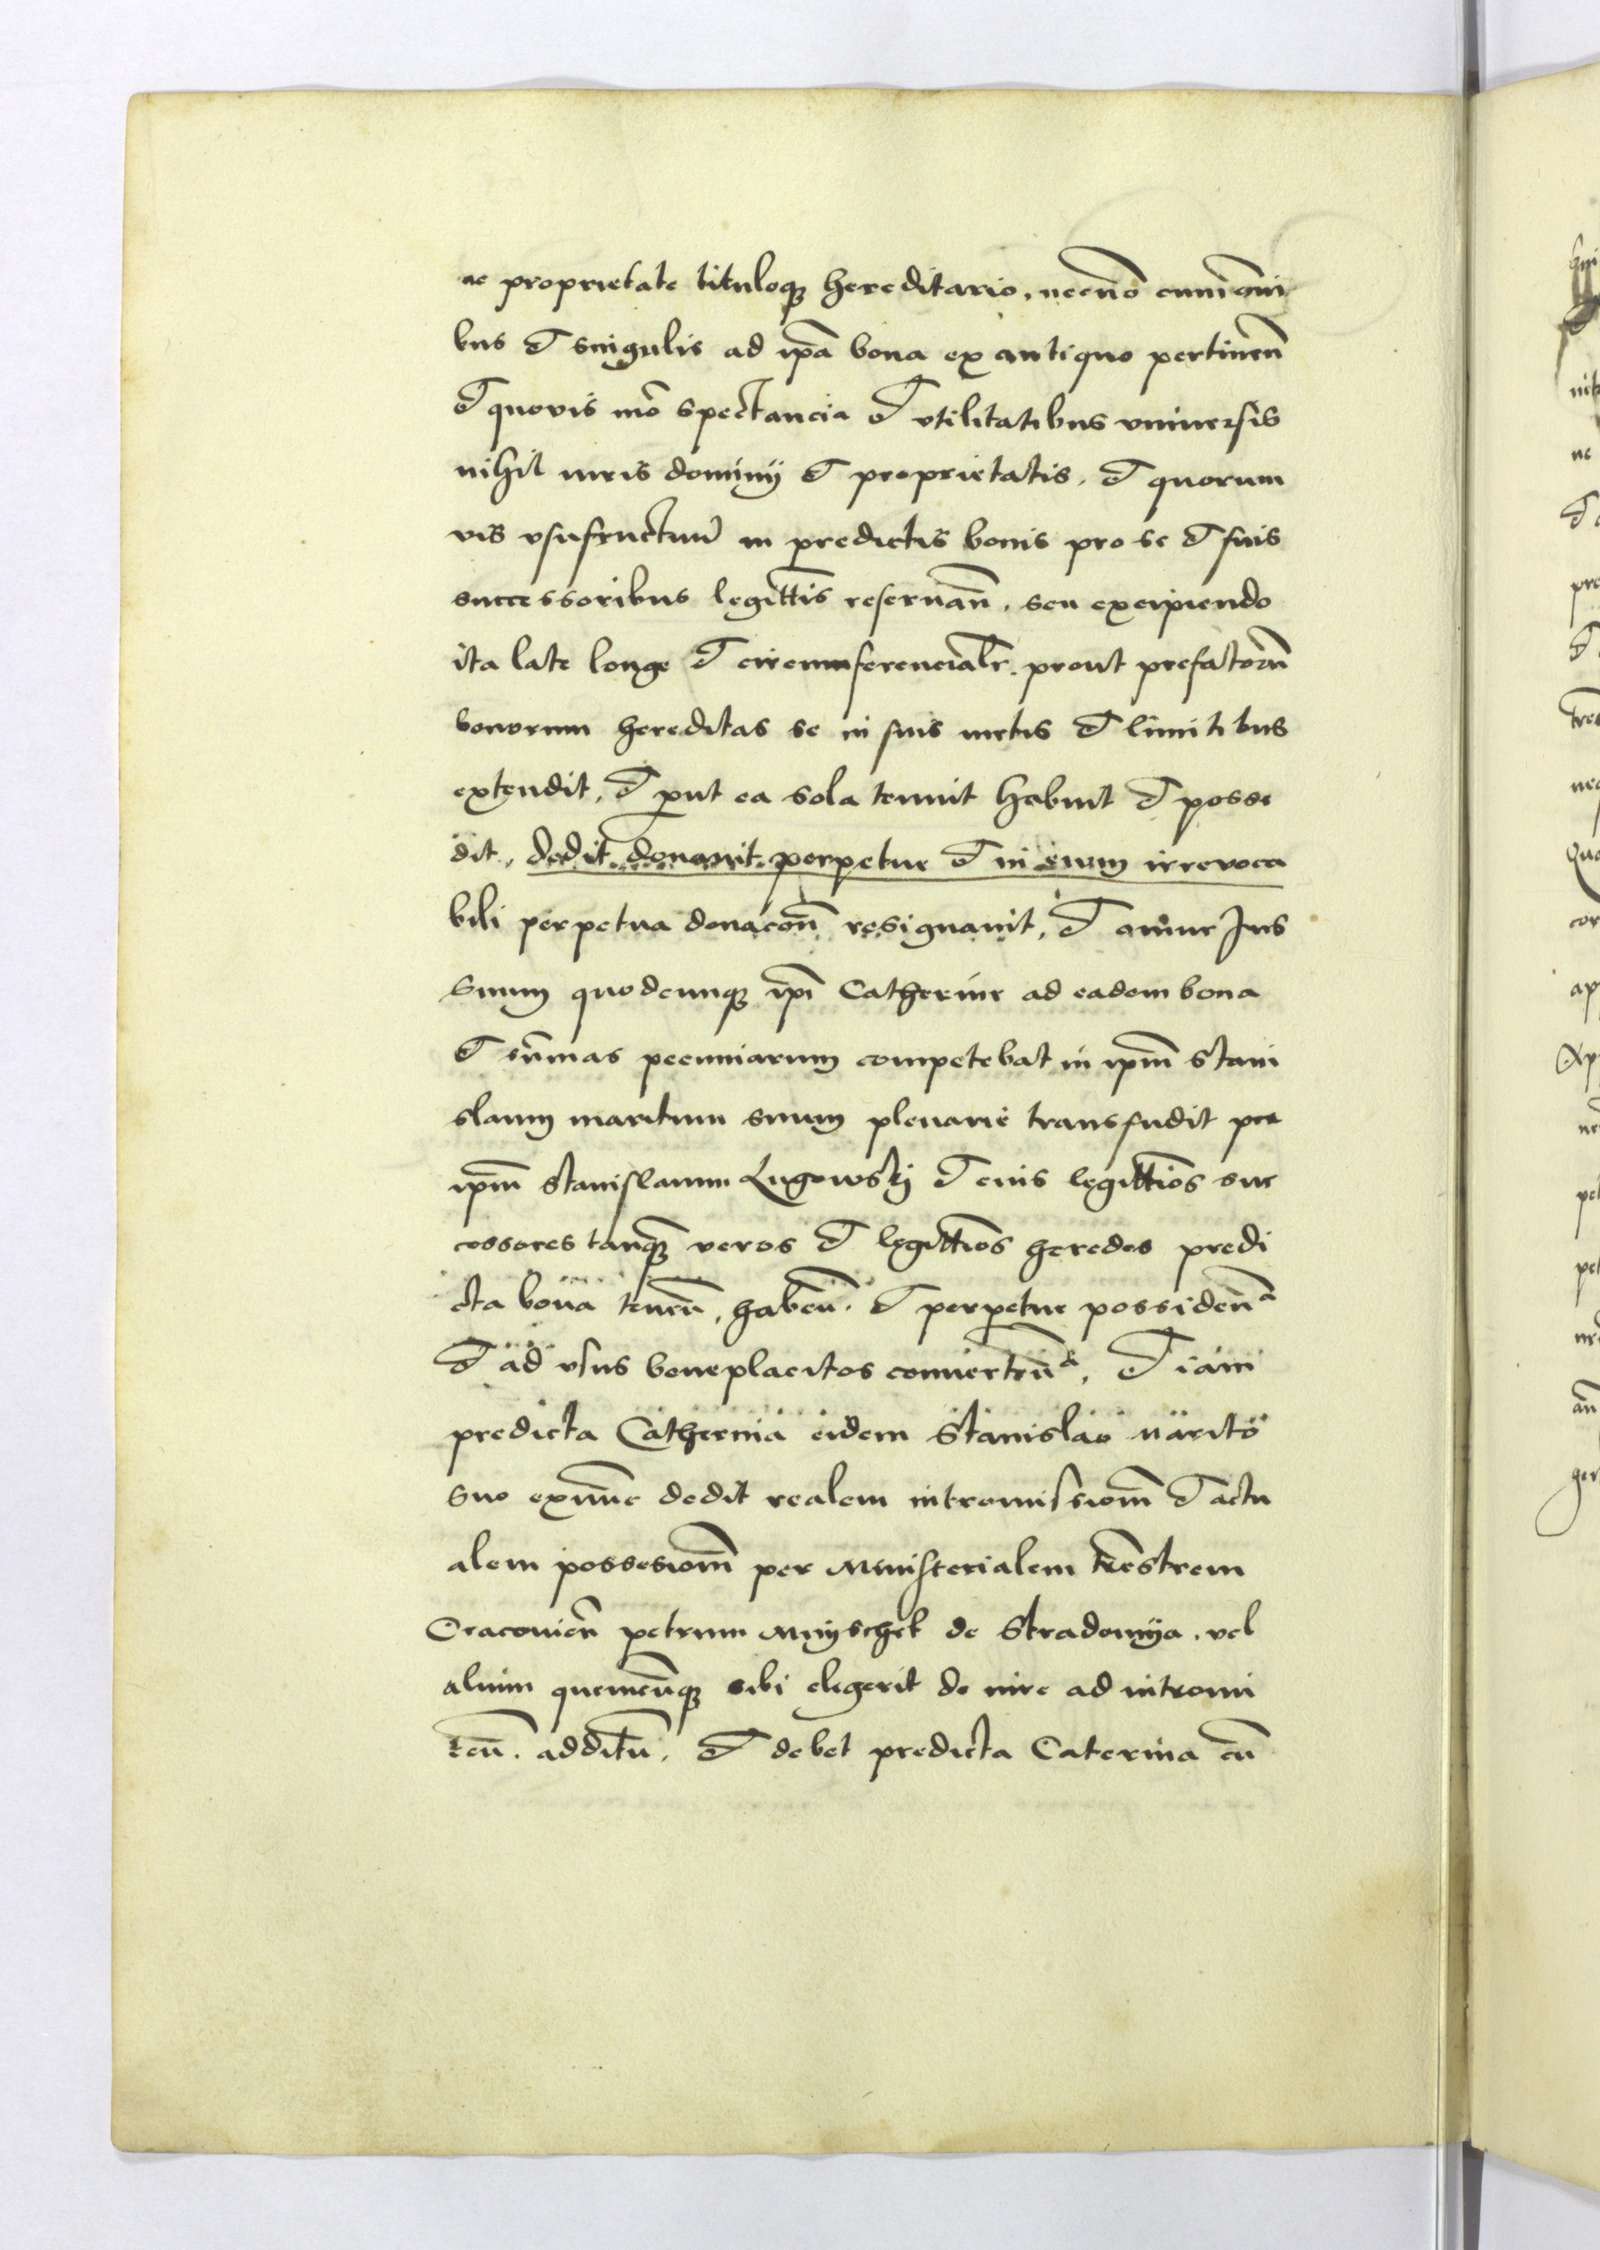 ac proprietate tituloq hereditario, necnō cum om̄i
bus et singulis ad ip̄a bona ex antiquo pertineñ
et quovis mō spectancia et vtilitatibus vniuersis
nihil iuris dominij et proprietatis, et quorum
vis vsufructuū in predictis bonis pro se et suis
successoribus legittīs reseruañ, seu excipiendo
ita late longe et circumferencialr̄, prout prefatorū
bonorum hereditas se in suis metis et limitibus
extendit, et prut ea sola tenuit habuit et posse
dit, dedit donauit perpetue et in euum irreuoca
bili perpetua donacoñ resignauit, et omne Jus
suum quodcunq ip̄i Catherine ad eadem bona
et sūmas pecuniarum competebat in ip̄m Stani
slaum maritum suum plenarie transfudit per
ip̄m Stanislaum Lugowskj et eius legittīos suc
cessores tanq̄ veros et legittīos heredes predi
cta bona teneñ, habeñ, et perpetue possideña
et ad vsus beneplacitos conuerteña, et iam
predicta Catherina eidem Stanislao marito
suo exnūc dedit realem intromissionē et actu
alem possesionē per Ministerialem tr̄estrem
Cracovieñ petrum Mnyschek de Stradomya, vel
alium quemcūq sibi elegerit de iure ad intromi
teñ. additū. et debet predicta Caterina cū